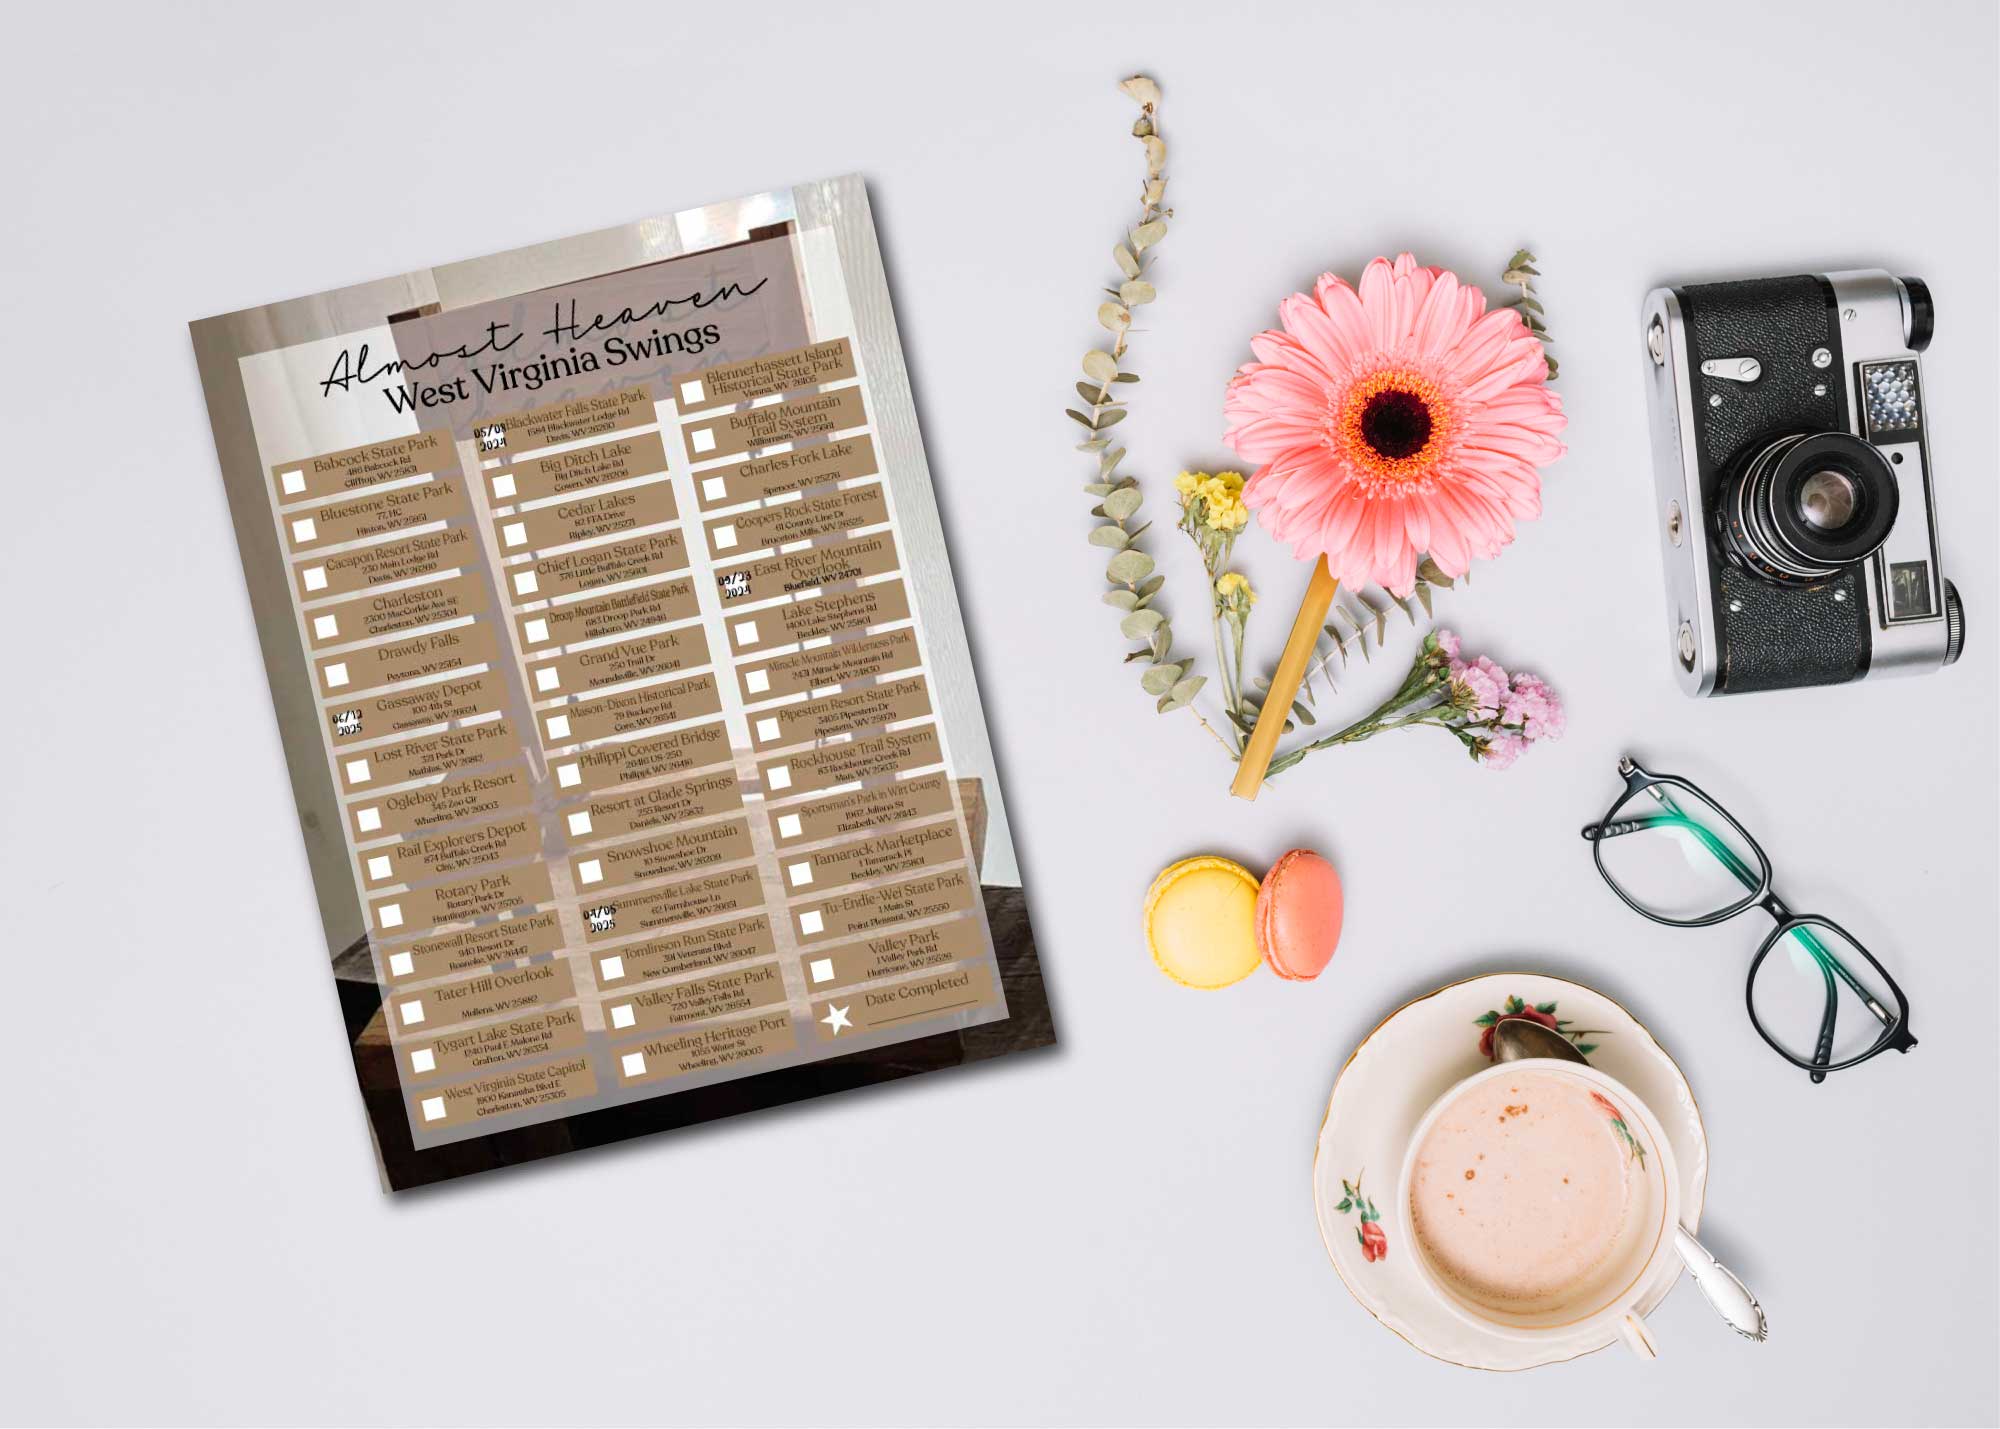 Almost Heaven
West Virginia Swings
Babcock State Park
486 Babcock Rd
Clifftop, WV 25831
Bluestone State Park
77, HC
Hinton, WV 25951
Cacapon Resort State Park
230 Main Lodge Rd
Davis, WV 26260
Charleston
2300 MacCorkle Ave SE
Charleston, WV 25304
Drawdy Falls
Peytona, WV 25154
06/12
2025
Gassaway Depot
100 4th St
Gassaway, WV 26624
Lost River State Park
321 Park Dr
Mathias, WV 26812
Oglebay Park Resort
345 Zoo Cir
Wheeling, WV 26003
Rail Explorers Depot
874 Buffalo Creek Rd
Clay, WV 25043
Rotary Park
Rotary Park Dr
Huntington, WV 25705
Stonewall Resort State Park
940 Resort Dr
Roanoke, WV 26447
Tater Hill Overlook
Mullens, WV 25882
Tygart Lake State Park
1240 Paul E Malone Rd
Grafton, WV 26354
West Virginia State Capitol
1900 Kanawha Blvd E
Charleston, WV 25305
05/08
2024
Blackwater Falls State Park
1584 Blackwater Lodge Rd
Davis, WV 26260
Big Ditch Lake
Big Ditch Lake Rd
Cowen, WV 26206
Cedar Lakes
82 FFA Drive
Ripley, WV 25271
Chief Logan State Park
376 Little Buffalo Creek Rd
Logan, WV 25601
Droop Mountain Battlefield State Park
683 Droop Park Rd
Hillsboro, WV 24946
Grand Vue Park
250 Trail Dr
Moundsville, WV 26041
Mason-Dixon Historical Park
79 Buckeye Rd
Core, WV 26541
Philippi Covered Bridge
26416 US-250
Philippi, WV 26416
Resort at Glade Springs
255 Resort Dr
Daniels, WV 25832
Snowshoe Mountain
10 Snowshoe Dr
Snowshoe, WV 26209
2025
Summersville Lake State Park
62 Farmhouse Ln
Summersville, WV 26651
Tomlinson Run State Park
391 Veterans Blvd
New Cumberland, WV 26047
Valley Falls State Park
720 Valley Falls Rd
Fairmont, WV 26554
Wheeling Heritage Port
1055 Water St
Wheeling, WV 26003
Blennerhassett Island
Historical State Park
Vienna, WV 26105
Buffalo Mountain
Trail System
Williamson, WV 25661
Charles Fork Lake
Spencer, WV 25276
Coopers Rock State Forest
61 County Line Dr
Bruceton Mills, WV 26525
09/23
2024
East River Mountain
Overlook
Bluefield, WV 24701
Lake Stephens
1400 Lake Stephens Rd
Beckley, WV 25801
Miracle Mountain Wilderness Park
2431 Miracle Mountain Rd
Elbert, WV 24830
Pipestem Resort State Park
3405 Pipestem Dr
Pipestem, WV 25979
Rockhouse Trail System
83 Rockhouse Creek Rd
Man, WV 25635
Sportsman's Park in Wirt County
1962 Juliana St
Elizabeth, WV 26143
Tamarack Marketplace
1 Tamarack Pl
Beckley, WV 25801
Tu-Endie-Wei State Park
1 Main St
Point Pleasant, WV 25550
Valley Park
1 Valley Park Rd
Hurricane, WV 25526
Date Completed